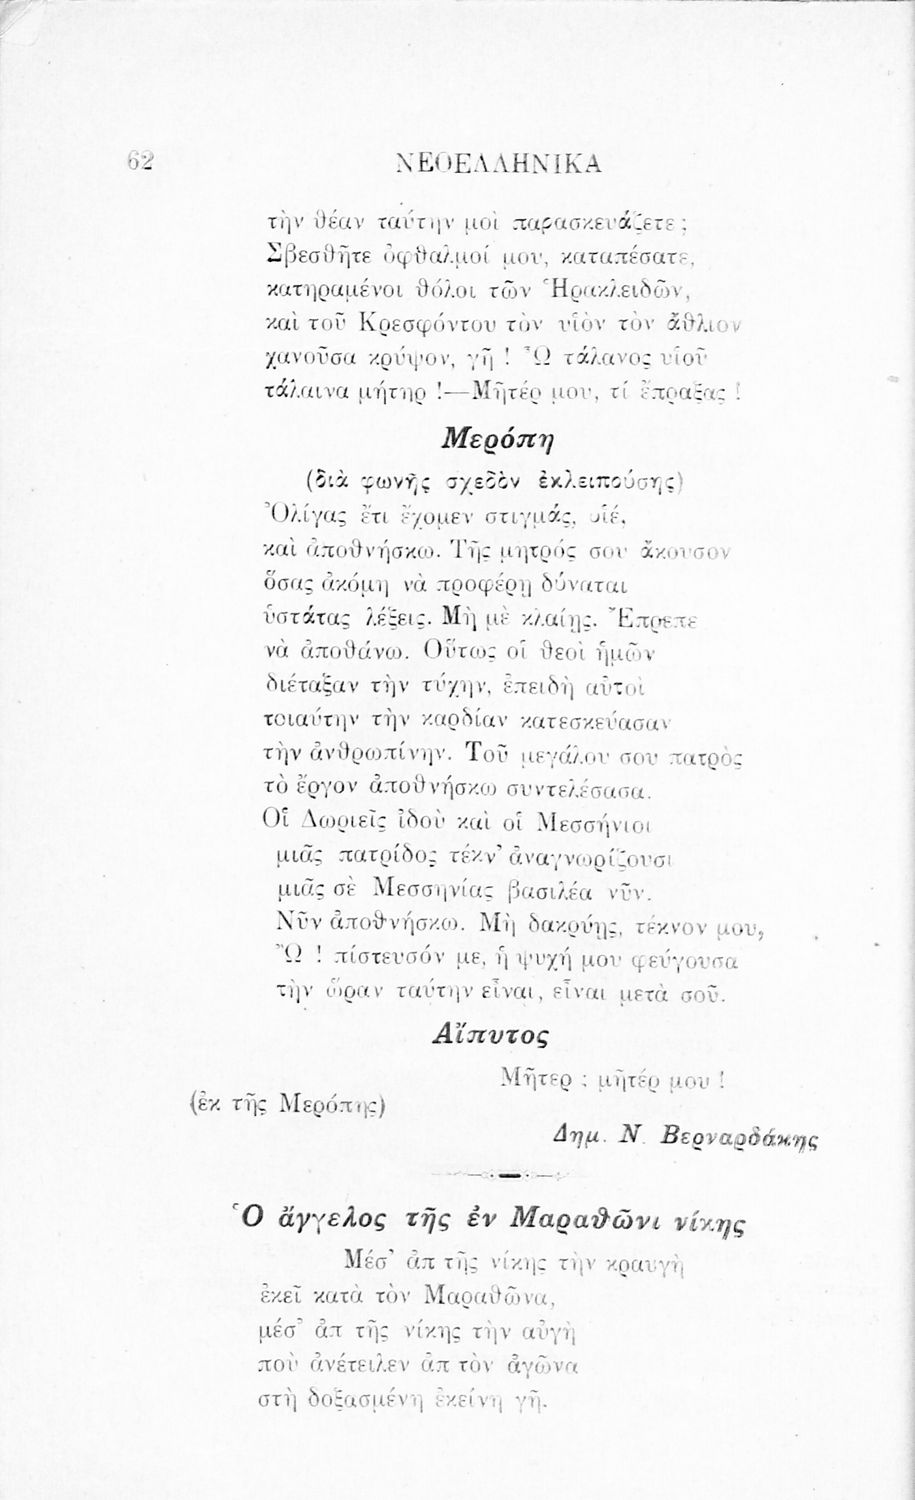 62
ΝΕΟΕΛΛΗΝΙΚΑ
τὴν θέαν ταύτην μοὶ παρασκευάζετε ;
Σβεσθῆτε ὀφθαλμοί μου, καταπέσατε,
κατηραμένοι θόλοι τῶν Ἡρακλειδῶν,
καὶ τοῦ Κρεσφόντου τὸν υἱὸν τὸν ἄθλιον
χανοῦσα κρύψον, γῆ ! Ὦ τάλανος υἱοῦ
τάλαινα μήτηρ !—Μῆτέρ μου, τί ἔπραξας !
Μερόπη
(διὰ φωνῆς σχεδὸν ἐκλειπούσης)
Ὀλίγας ἔτι ἔχομεν στιγμάς, υἱέ,
καὶ ἀποθνήσκω. Τῆς μητρός σου ἄκουσον
ὅσας ἀκόμη νὰ προφέρῃ δύναται
ὑστάτας λέξεις. Μὴ μὲ κλαίῃς. Ἔπρεπε
νὰ ἀποθάνω. Οὕτως οἱ θεοὶ ἡμῶν
διέταξαν τὴν τύχην, ἐπειδὴ αὐτοὶ
τοιαύτην τὴν καρδίαν κατεσκεύασαν
τὴν ἀνθρωπίνην. Τοῦ μεγάλου σου πατρὸς
τὸ ἔργον ἀποθνήσκω συντελέσασα.
Οἱ Δωριεῖς ἰδοὺ καὶ οἱ Μεσσήνιοι
μιᾶς πατρίδος τέκν' ἀναγνωρίζουσι
μιᾶς σὲ Μεσσηνίας βασιλέα νῦν.
Νῦν ἀποθνήσκω. Μὴ δακρύῃς, τέκνον μου,
Ὢ ! πίστευσόν με, ἡ ψυχή μου φεύγουσα
τὴν ὥραν ταύτην εἶναι, εἶναι μετὰ σοῦ.
Αἴπυτος
Μῆτερ ; μῆτέρ μου !
(ἐκ τῆς Μερόπης)
Δημ. Ν. Βερναρδάκης
Ὁ ἄγγελος τῆς ἐν Μαραθῶνι νίκης
Μέσ' ἀπ τῆς νίκης τὴν κραυγὴ
ἐκεῖ κατὰ τὸν Μαραθῶνα,
μέσ' ἀπ τῆς νίκης τὴν αὐγὴ
ποὺ ἀνέτειλεν ἀπ τὸν ἀγῶνα
στὴ δοξασμένη ἐκείνη γῆ.